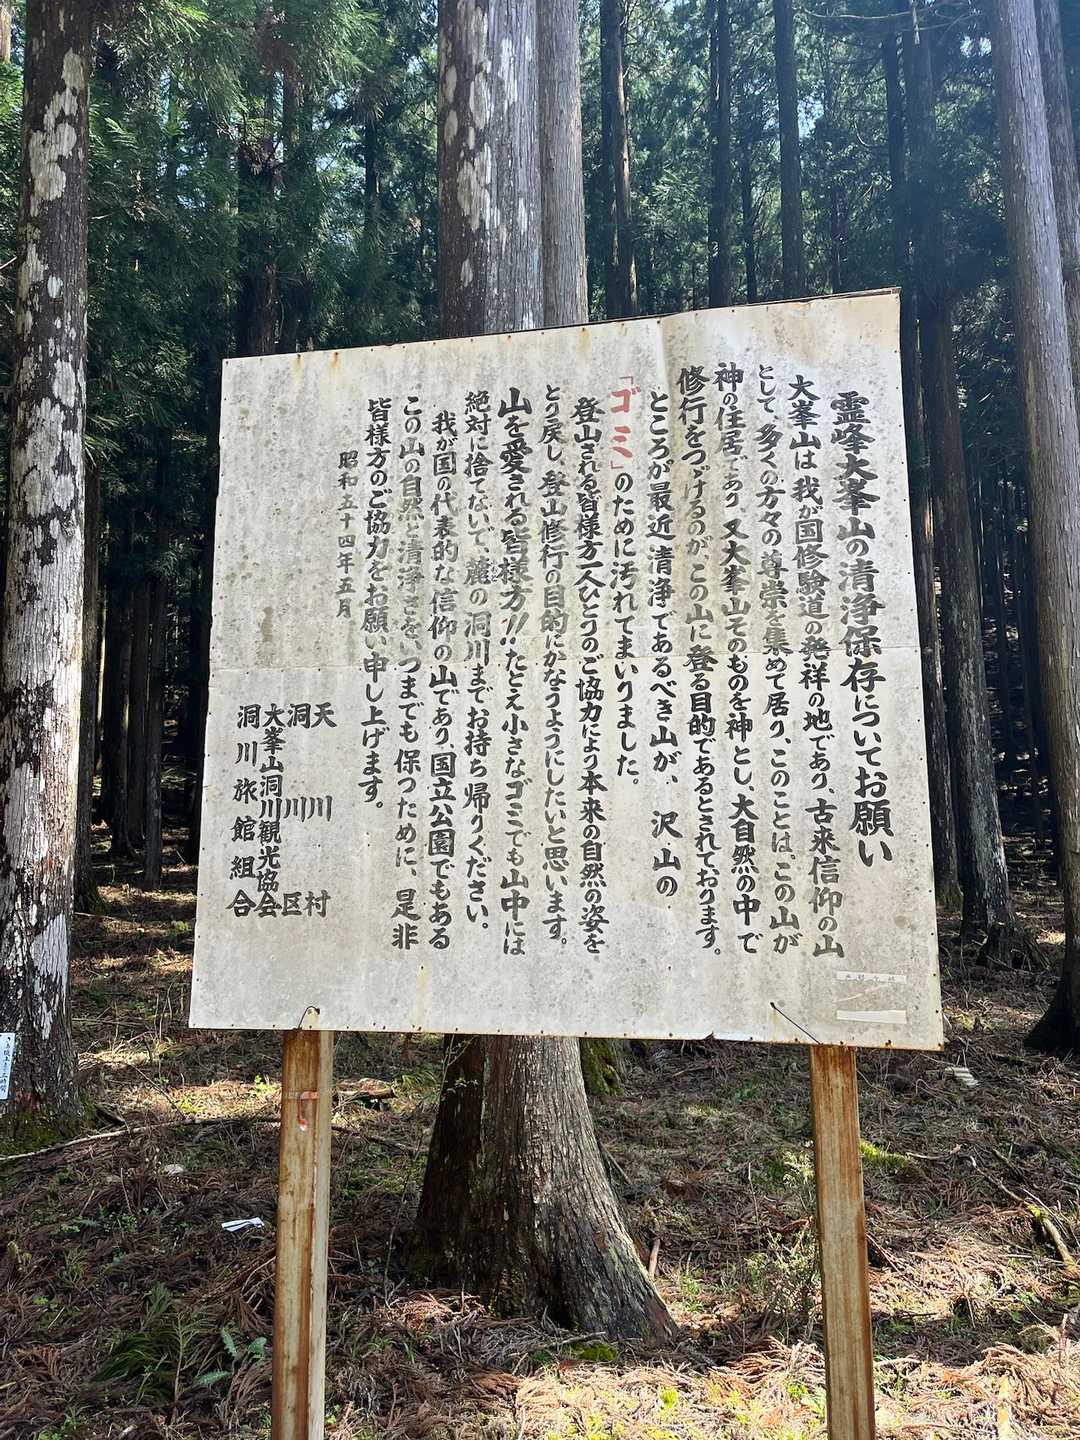 霊峰大峯山の清浄保存についてお願い
大峯山は我が国修験道の発祥の地であり、古来信仰の山
として、多くの方々の尊崇を集めて居り、このことは、この山が
神の住居であり、又大峯山そのものを神とし、大自然の中で
修行をつゞけるのが、この山に登る目的であるとされております。
ところが最近、清浄であるべき山が、沢山の
「ゴミ」のために汚れてまいりました。
登山される皆様方一人ひとりのご協力により本来の自然の姿を
とり戻し、登山修行の目的にかなうようにしたいと思います。
山を愛される皆様方!!たとえ小さなゴミでも山中には
絶対に捨てないで、麓の洞川までお持ち帰りください。
我が国の代表的な信仰の山であり、国立公園でもある
この山の自然と清浄さをいつまでも保つために、是非
皆様方のご協力をお願い申し上げます。
昭和五十四年五月
天川村
洞川区
大峯山洞川観光協会
洞川旅館組合